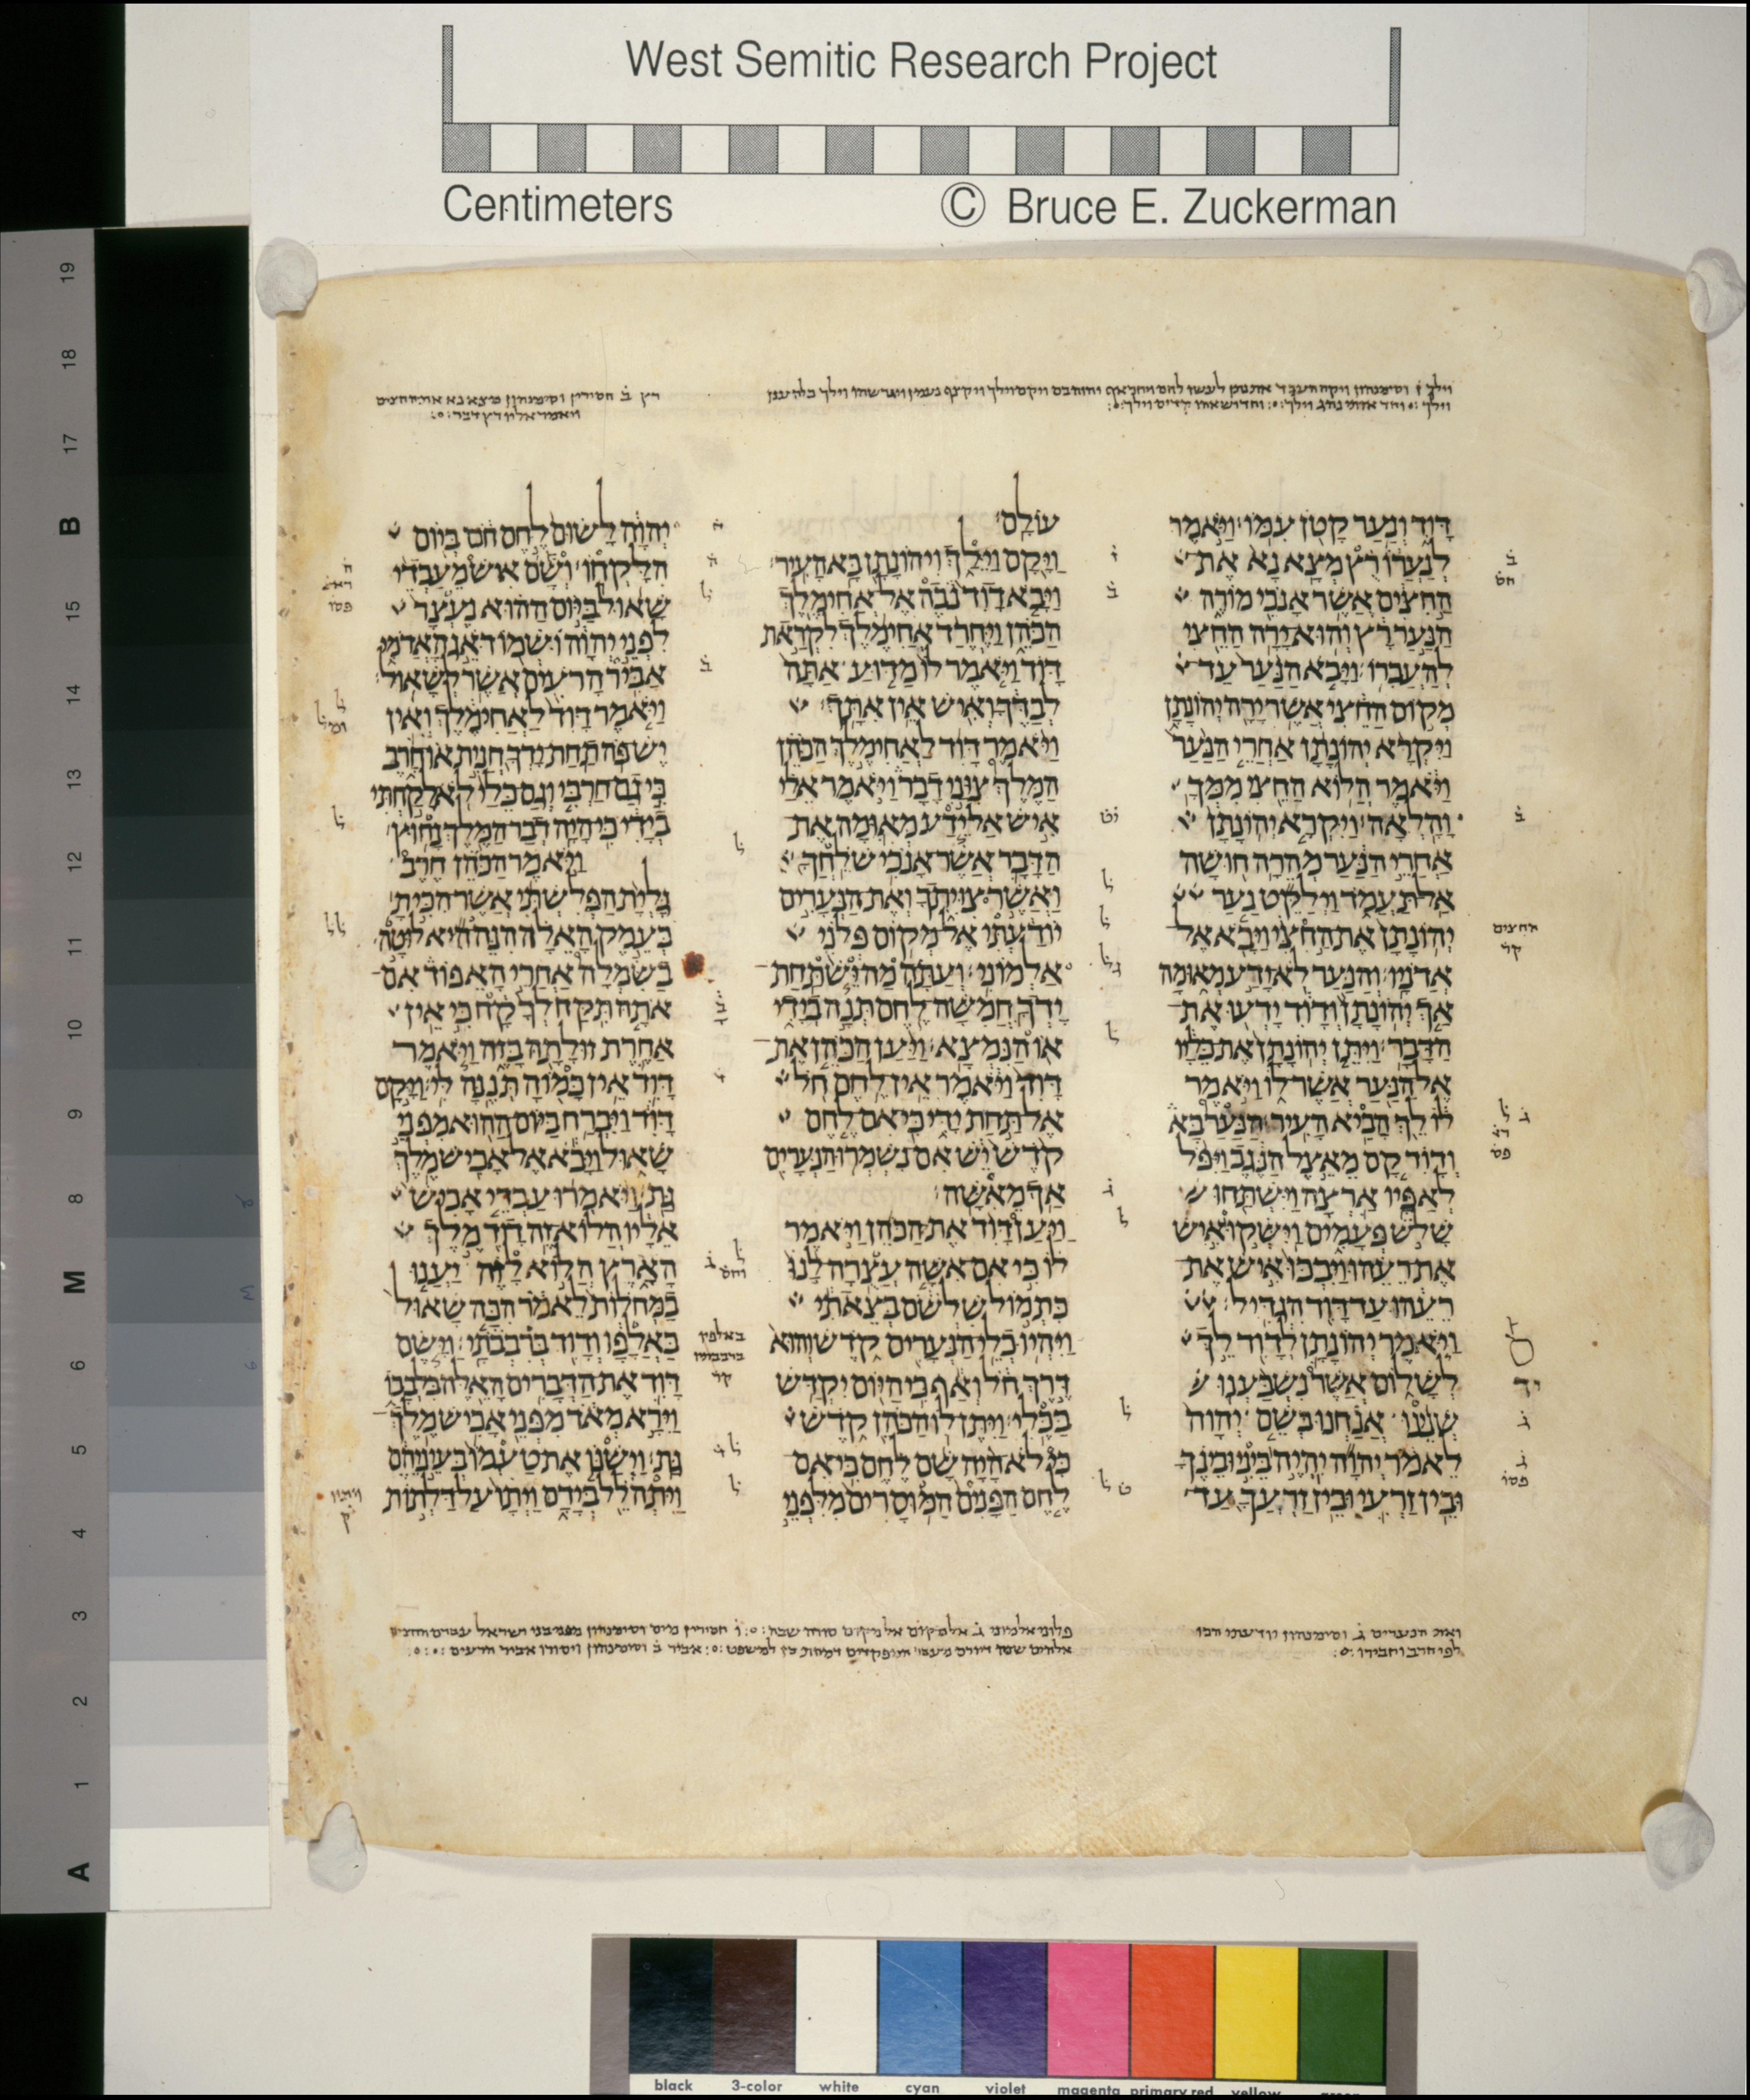 West Semitic Research Project
Centimeters © Bruce E. Zuckerman
דָּוִד וְנַעַר קָטֹן עִמּוֹ׃ וַיֹּאמֶר
לְנַעֲרוֹ רֻץ מְצָא נָא אֶת־
הַחִצִּים אֲשֶׁר אָנֹכִי מוֹרֶה
הַנַּעַר רָץ וְהוּא־יָרָה הַחֵצִי
לְהַעֲבִרוֹ׃ וַיָּבֹא הַנַּעַר עַד־
מְקוֹם הַחֵצִי אֲשֶׁר יָרָה יְהוֹנָתָן
וַיִּקְרָא יְהוֹנָתָן אַחֲרֵי הַנַּעַר
וַיֹּאמֶר הֲלוֹא הַחֵצִי מִמְּךָ
וָהָלְאָה׃ וַיִּקְרָא יְהוֹנָתָן
אַחֲרֵי הַנַּעַר מְהֵרָה חוּשָׁה
אַל־תַּעֲמֹד וַיְלַקֵּט נַעַר
יְהוֹנָתָן אֶת־הַחִצִּי וַיָּבֹא אֶל־
אֲדֹנָיו׃ וְהַנַּעַר לֹא־יָדַע מְאוּמָה
אַךְ יְהוֹנָתָן וְדָוִד יָדְעוּ אֶת־
הַדָּבָר׃ וַיִּתֵּן יְהוֹנָתָן אֶת־כֵּלָיו
אֶל־הַנַּעַר אֲשֶׁר־לוֹ וַיֹּאמֶר
לוֹ לֵךְ הָבֵיא הָעִיר׃ הַנַּעַר בָּא
וְדָוִד קָם מֵאֵצֶל הַנֶּגֶב וַיִּפֹּל
לְאַפָּיו אַרְצָה וַיִּשְׁתַּחוּ
שָׁלֹשׁ פְּעָמִים וַיִּשְּׁקוּ אִישׁ
אֶת־רֵעֵהוּ וַיִּבְכּוּ אִישׁ אֶת־
רֵעֵהוּ עַד־דָּוִד הִגְדִּיל׃
וַיֹּאמֶר יְהוֹנָתָן לְדָוִד לֵךְ
לְשָׁלוֹם אֲשֶׁר נִשְׁבַּעְנוּ
שְׁנֵינוּ אֲנַחְנוּ בְּשֵׁם יְהוָה
לֵאמֹר יְהוָה יִהְיֶה בֵּינִי וּבֵינֶךָ
וּבֵין זַרְעִי וּבֵין זַרְעֲךָ עַד־
עוֹלָם׃
וַיָּקָם וַיֵּלַךְ וִיהוֹנָתָן בָּא הָעִיר׃
וַיָּבֹא דָוִד נֹבֶה אֶל־אֲחִימֶלֶךְ
הַכֹּהֵן וַיֶּחֱרַד אֲחִימֶלֶךְ לִקְרַאת
דָּוִד וַיֹּאמֶר לוֹ מַדּוּעַ אַתָּה
לְבַדֶּךָ וְאִישׁ אֵין אִתָּךְ׃
וַיֹּאמֶר דָּוִד לַאֲחִימֶלֶךְ הַכֹּהֵן
הַמֶּלֶךְ צִוַּנִי דָבָר וַיֹּאמֶר אֵלַי
אִישׁ אַל־יֵדַע מְאוּמָה אֶת־
הַדָּבָר אֲשֶׁר־אָנֹכִי שֹׁלֵחֲךָ
וַאֲשֶׁר צִוִּיתִךָ וְאֶת־הַנְּעָרִים
יוֹדַעְתִּי אֶל־מְקוֹם פְּלֹנִי
אַלְמוֹנִי׃ וְעַתָּה מַה־יֵּשׁ תַּחַת־
יָדְךָ חֲמִשָּׁה־לֶחֶם תְּנָה בְיָדִי
אוֹ הַנִּמְצָא׃ וַיַּעַן הַכֹּהֵן אֶת־
דָּוִד וַיֹּאמֶר אֵין־לֶחֶם חֹל
אֶל־תַּחַת יָדִי כִּי־אִם־לֶחֶם
קֹדֶשׁ יֵשׁ אִם־נִשְׁמְרוּ הַנְּעָרִים
אַךְ מֵאִשָּׁה׃
וַיַּעַן דָּוִד אֶת־הַכֹּהֵן וַיֹּאמֶר
לוֹ כִּי אִם־אִשָּׁה עֲצֻרָה־לָנוּ
כִּתְמוֹל שִׁלְשֹׁם בְּצֵאתִי
וַיִּהְיוּ כְלֵי־הַנְּעָרִים קֹדֶשׁ וְהוּא
דֶּרֶךְ חֹל וְאַף כִּי הַיּוֹם יִקְדַּשׁ
בַּכֶּלִי׃ וַיִּתֶּן־לוֹ הַכֹּהֵן קֹדֶשׁ
כִּי לֹא־הָיָה שָׁם לֶחֶם כִּי־אִם־
לֶחֶם הַפָּנִים הַמּוּסָרִים מִלִּפְנֵי
יְהוָה לָשׂוּם לֶחֶם חֹם בְּיוֹם
הִלָּקְחוֹ׃ וְשָׁם אִישׁ מֵעַבְדֵי
שָׁאוּל בַּיּוֹם הַהוּא נֶעְצָר
לִפְנֵי יְהוָה וּשְׁמוֹ דֹּאֵג הָאֲדֹמִי
אַבִּיר הָרֹעִים אֲשֶׁר לְשָׁאוּל׃
וַיֹּאמֶר דָּוִד לַאֲחִימֶלֶךְ וְאִין
יֶשׁ־פֹּה תַחַת־יָדְךָ חֲנִית אוֹ־חָרֶב
כִּי גַם־חַרְבִּי וְגַם־כֵּלַי לֹא־לָקַחְתִּי
בְיָדִי כִּי־הָיָה דְבַר־הַמֶּלֶךְ נָחוּץ׃
וַיֹּאמֶר הַכֹּהֵן חֶרֶב
גָּלְיָת הַפְּלִשְׁתִּי אֲשֶׁר־הִכִּיתָ
בְּעֵמֶק הָאֵלָה הִנֵּה־הִיא לוּטָה
בַשִּׂמְלָה אַחֲרֵי הָאֵפוֹד אִם־
אֹתָהּ תִּקַּח־לְךָ קָח כִּי אֵין
אַחֶרֶת זוּלָתָהּ בָּזֶה וַיֹּאמֶר
דָּוִד אֵין כָּמוֹהָ תְּנֶנָּה לִּי׃ וַיָּקָם
דָּוִד וַיִּבְרַח בַּיּוֹם־הַהוּא מִפְּנֵי
שָׁאוּל וַיָּבֹא אֶל־אָכִישׁ מֶלֶךְ
גַּת׃ וַיֹּאמְרוּ עַבְדֵי אָכִישׁ
אֵלָיו הֲלוֹא־זֶה דָוִד מֶלֶךְ
הָאָרֶץ הֲלוֹא לָזֶה יַעֲנוּ
בַמְּחֹלוֹת לֵאמֹר הִכָּה שָׁאוּל
בַּאֲלָפָו וְדָוִד בְּרִבְבֹתָו׃ וַיָּשֶׂם
דָּוִד אֶת־הַדְּבָרִים הָאֵלֶּה בִּלְבָבוֹ
וַיִּרָא מְאֹד מִפְּנֵי אָכִישׁ מֶלֶךְ־
גַּת׃ וַיְשַׁנּוֹ אֶת־טַעְמוֹ בְּעֵינֵיהֶם
וַיִּתְהֹלֵל בְּיָדָם וַיְתָו עַל־דַּלְתוֹת
החצים
קר
באלפיו
ברבבותיו
קר
ואת הנערים ג וסימנהון
black 3-color white cyan violet magenta primary red yellow green
19
18
17
B
16
15
14
13
12
11
10
9
8
M
6
5
4
3
2
1
A